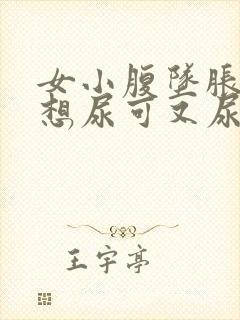 女小腹墜脹
想尿可又尿
王宇亭